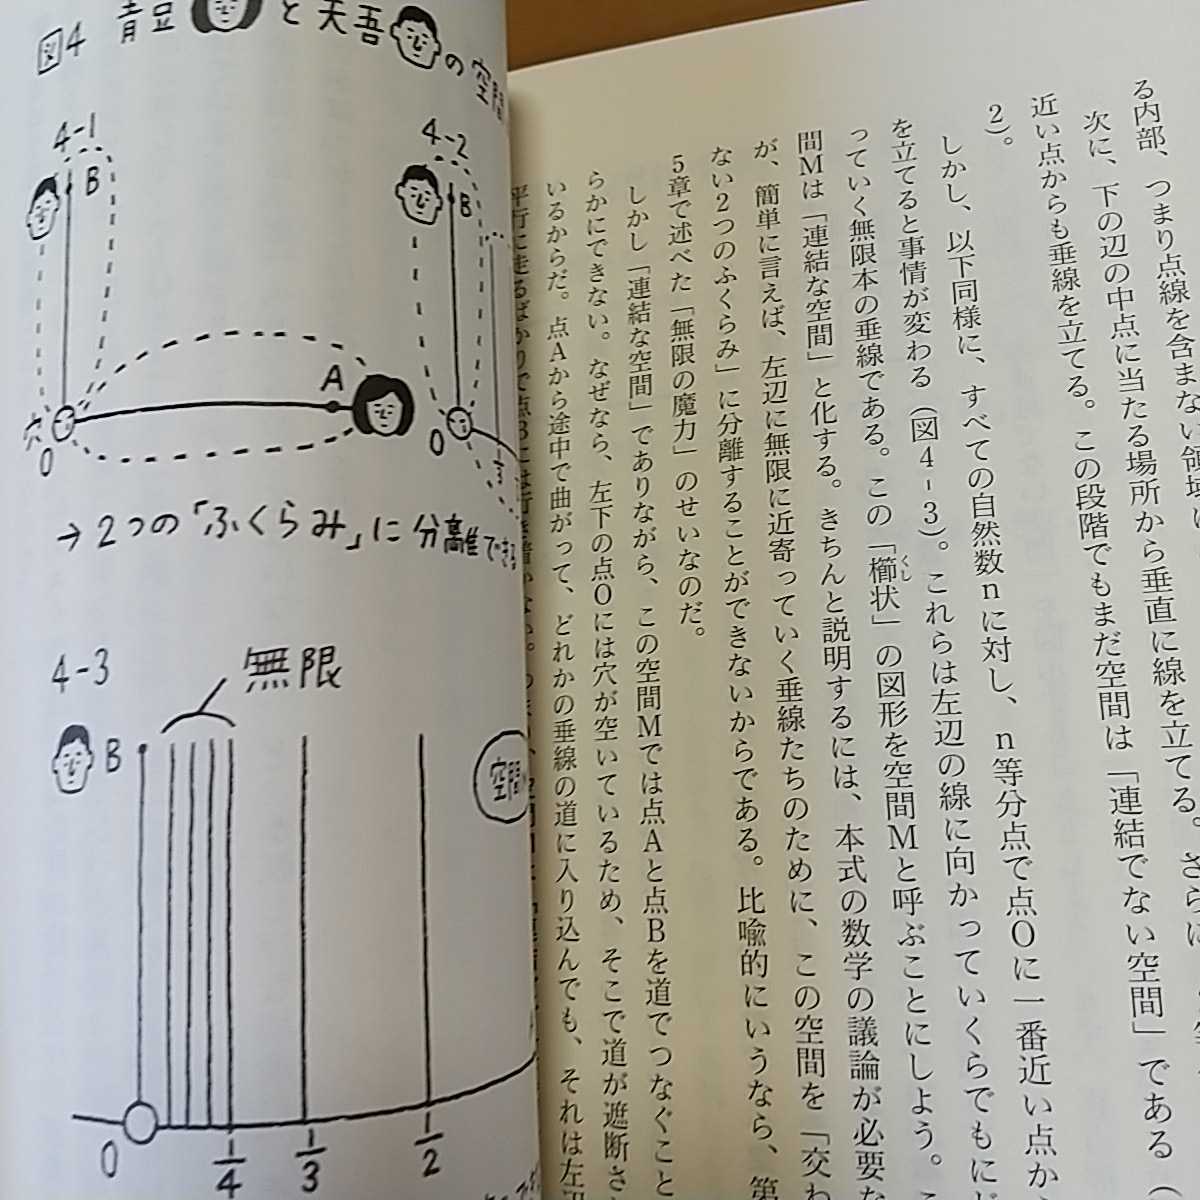 る内部、つまり点線を含まない領域
次に、下の辺の中点に当たる場所から垂直に線を立てる。さらに、
近い点からも垂線を立てる。この段階でもまだ空間は「連結でない空間」である（
2）。
しかし、以下同様に、すべての自然数nに対し、n等分点で点Oに一番近い点か
を立てると事情が変わる（図4-3）。これらは左辺の線に向かっていくらでもに
っていく無限本の垂線である。この「櫛状」の図形を空間Mと呼ぶことにしよう。こ
くし
間Mは「連結な空間」と化する。きちんと説明するには、本式の数学の議論が必要な
が、簡単に言えば、左辺に無限に近寄っていく垂線たちのために、この空間を「交わ
ない2つのふくらみ」に分離することができないからである。比喩的にいうなら、第
5章で述べた「無限の魔力」のせいなのだ。
しかし「連結な空間」でありながら、この空間Mでは点Aと点Bを道でつなぐこと
らかにできない。なぜなら、左下の点Oには穴が空いているため、そこで道が遮断さ
いるからだ。点Aから途中で曲がって、どれかの垂線の道に入り込んでも、それは左辺
平行に走るばかりで点Bには行き着かない。
図4 青豆と天吾の空間
4-1
B
A
穴
O
4-2
B
O
→2つの「ふくらみ」に分離できる
4-3
無限
B
空間
O
1/4
1/3
1/2